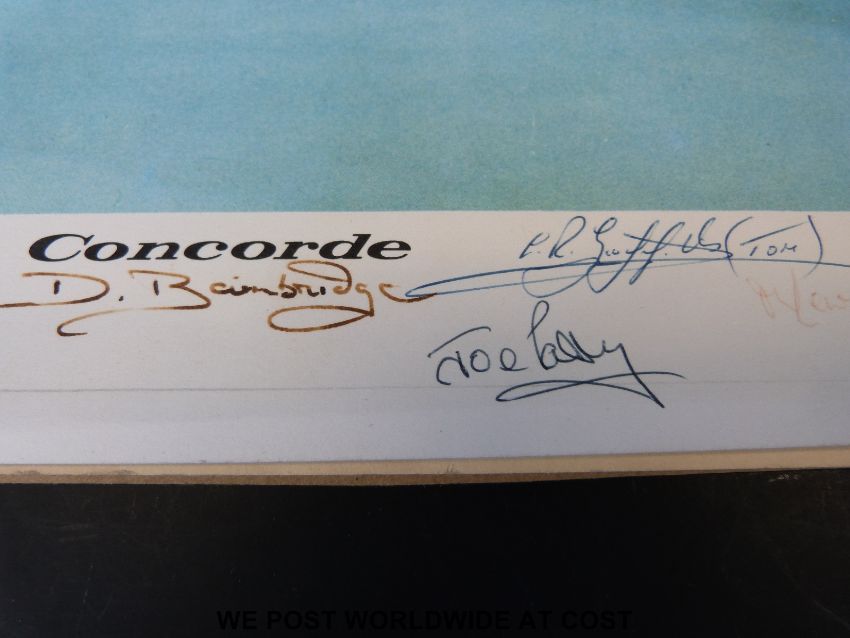 Concorde
D. Bainbridge
R. Griffiths (Tom)
Joe
WE POST WORLDWIDE AT COST